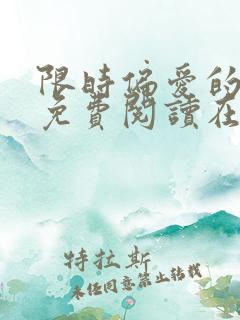 限時偏愛的
免費閱讀在
特拉斯
未經同意禁止轉載